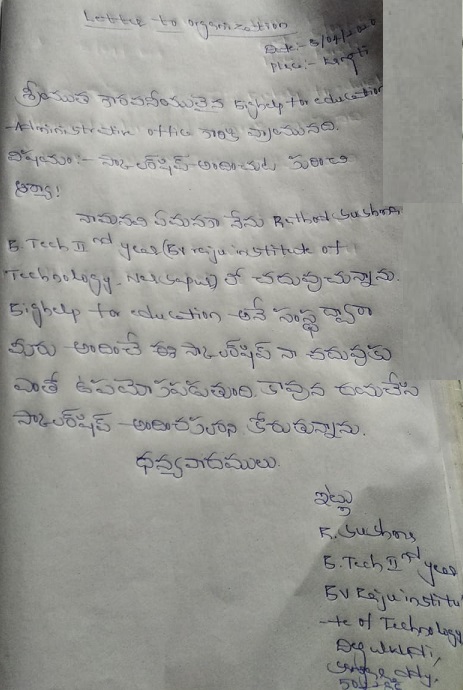 Letter to organization
Date:- 5/04/2020
Place:- Kangti
శ్రీయుత గౌరవనీయులైన Bighelp for education
Administration office గారికి వ్రాయునది.
విషయం:- స్కాలర్‌షిప్ అందించుట గురించి
ఆర్యా!
నామనవి ఏమనగా నేను Rathod Sushma
B.Tech II nd year (BV raju institute of
Technology, Narsapur) లో చదువుచున్నాను.
Bighelp for education అనే సంస్థ ద్వారా
మీరు అందించే ఈ స్కాలర్‌షిప్ నా చదువుకు
ఎంతో ఉపయోగపడుతుంది. కావున దయచేసి
స్కాలర్‌షిప్ అందించగలరని కోరుతున్నాను.
ధన్యవాదములు.
ఇట్లు
R. Sushma
B.Tech II nd year
BV Raju institu
-te of Technology